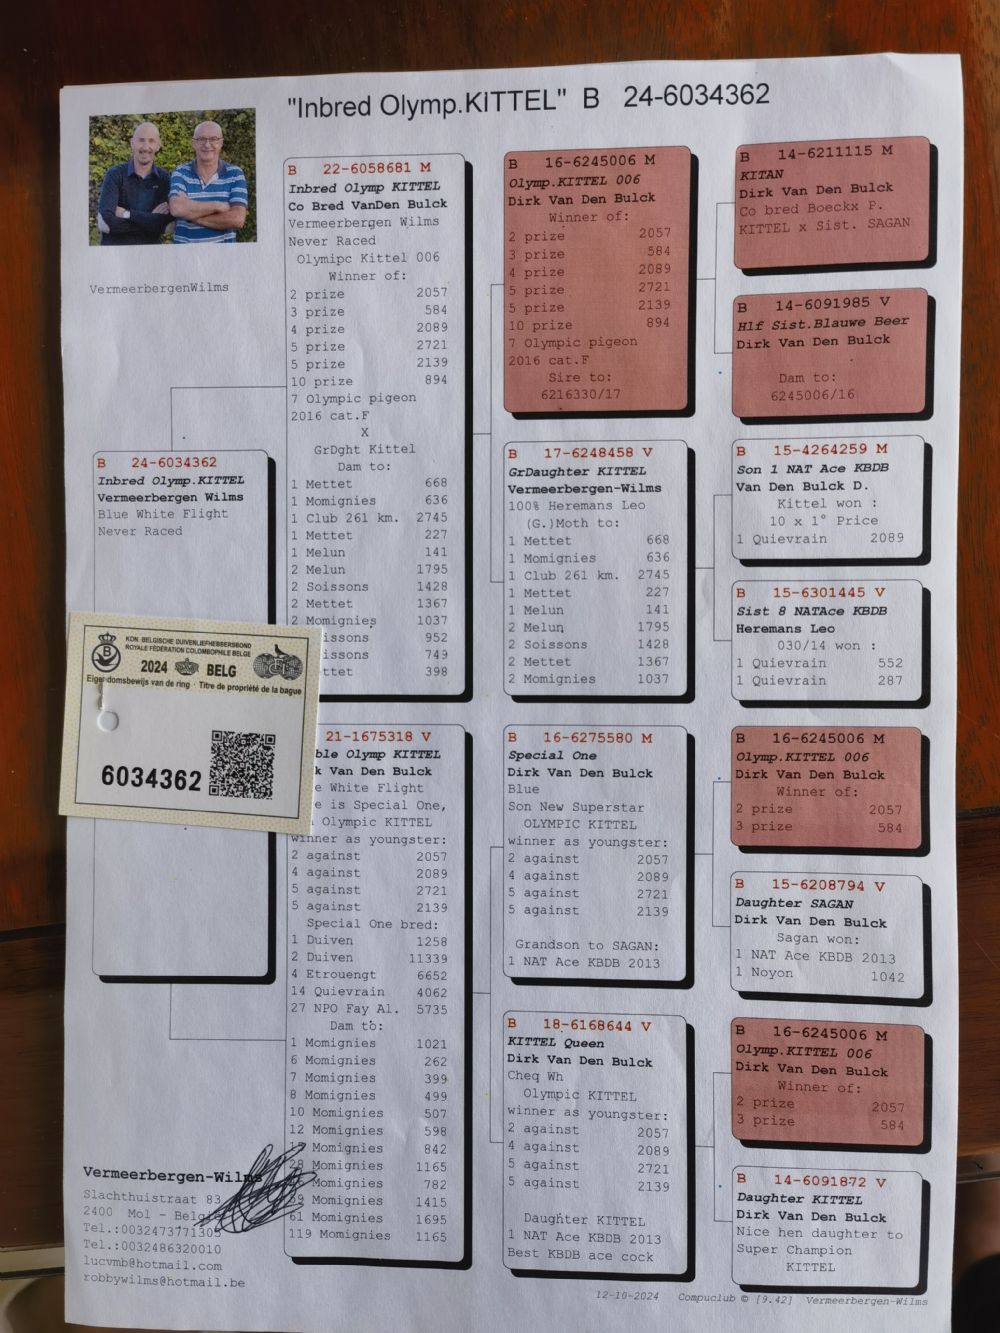 "Inbred Olymp.KITTEL" B 24-6034362
VermeerbergenWilms
B 24-6034362
Inbred Olymp.KITTEL
Vermeerbergen Wilms
Blue White Flight
Never Raced
KON. BELGISCHE DUIVENLIEFHEBBERSBOND
ROYALE FÉDÉRATION COLOMBOPHILE BELGE
2024 BELG
Eigendomsbewijs van de ring - Titre de propriété de la bague
6034362
Vermeerbergen-Wilms
Slachthuistraat 83
2400 Mol - Belgie
Tel.:0032473771305
Tel.:0032486320010
lucvmb@hotmail.com
robbywilms@hotmail.be
B 22-6058681 M
Inbred Olymp KITTEL
Co Bred VanDen Bulck
Vermeerbergen Wilms
Never Raced
Olymipc Kittel 006
Winner of:
2 prize 2057
3 prize 584
4 prize 2089
5 prize 2721
5 prize 2139
10 prize 894
7 Olympic pigeon
2016 cat.F
X
GrDght Kittel
Dam to:
1 Mettet 668
1 Momignies 636
1 Club 261 km. 2745
1 Mettet 227
1 Melun 141
2 Melun 1795
2 Soissons 1428
2 Mettet 1367
2 Momignies 1037
issons 952
issons 749
ttet 398
21-1675318 V
ble Olymp KITTEL
k Van Den Bulck
e White Flight
e is Special One,
Olympic KITTEL
winner as youngster:
2 against 2057
4 against 2089
5 against 2721
5 against 2139
Special One bred:
1 Duiven 1258
2 Duiven 11339
4 Etrouengt 6652
14 Quievrain 4062
27 NPO Fay Al. 5735
Dam to:
1 Momignies 1021
6 Momignies 262
7 Momignies 399
8 Momignies 499
10 Momignies 507
12 Momignies 598
Momignies 842
28 Momignies 1165
Momignies 782
59 Momignies 1415
61 Momignies 1695
119 Momignies 1165
B 16-6245006 M
Olymp.KITTEL 006
Dirk Van Den Bulck
Winner of:
2 prize 2057
3 prize 584
4 prize 2089
5 prize 2721
5 prize 2139
10 prize 894
7 Olympic pigeon
2016 cat.F
Sire to:
6216330/17
B 17-6248458 V
GrDaughter KITTEL
Vermeerbergen-Wilms
100% Heremans Leo
(G.)Moth to:
1 Mettet 668
1 Momignies 636
1 Club 261 km. 2745
1 Mettet 227
1 Melun 141
2 Melun 1795
2 Soissons 1428
2 Mettet 1367
2 Momignies 1037
B 16-6275580 M
Special One
Dirk Van Den Bulck
Blue
Son New Superstar
OLYMPIC KITTEL
winner as youngster:
2 against 2057
4 against 2089
5 against 2721
5 against 2139
Grandson to SAGAN:
1 NAT Ace KBDB 2013
B 18-6168644 V
KITTEL Queen
Dirk Van Den Bulck
Cheq Wh
Olympic KITTEL
winner as youngster:
2 against 2057
4 against 2089
5 against 2721
5 against 2139
Daughter KITTEL
1 NAT Ace KBDB 2013
Best KBDB ace cock
B 14-6211115 M
KITAN
Dirk Van Den Bulck
Co bred Boeckx P.
KITTEL x Sist. SAGAN
B 14-6091985 V
Hlf Sist.Blauwe Beer
Dirk Van Den Bulck
Dam to:
6245006/16
B 15-4264259 M
Son 1 NAT Ace KBDB
Van Den Bulck D.
Kittel won :
10 x 1° Price
1 Quievrain 2089
B 15-6301445 V
Sist 8 NATAce KBDB
Heremans Leo
030/14 won :
1 Quievrain 552
1 Quievrain 287
B 16-6245006 M
Olymp.KITTEL 006
Dirk Van Den Bulck
Winner of:
2 prize 2057
3 prize 584
B 15-6208794 V
Daughter SAGAN
Dirk Van Den Bulck
Sagan won:
1 NAT Ace KBDB 2013
1 Noyon 1042
B 16-6245006 M
Olymp.KITTEL 006
Dirk Van Den Bulck
Winner of:
2 prize 2057
3 prize 584
B 14-6091872 V
Daughter KITTEL
Dirk Van Den Bulck
Nice hen daughter to
Super Champion
KITTEL
12-10-2024 Compuclub © [9.42] Vermeerbergen-Wilms